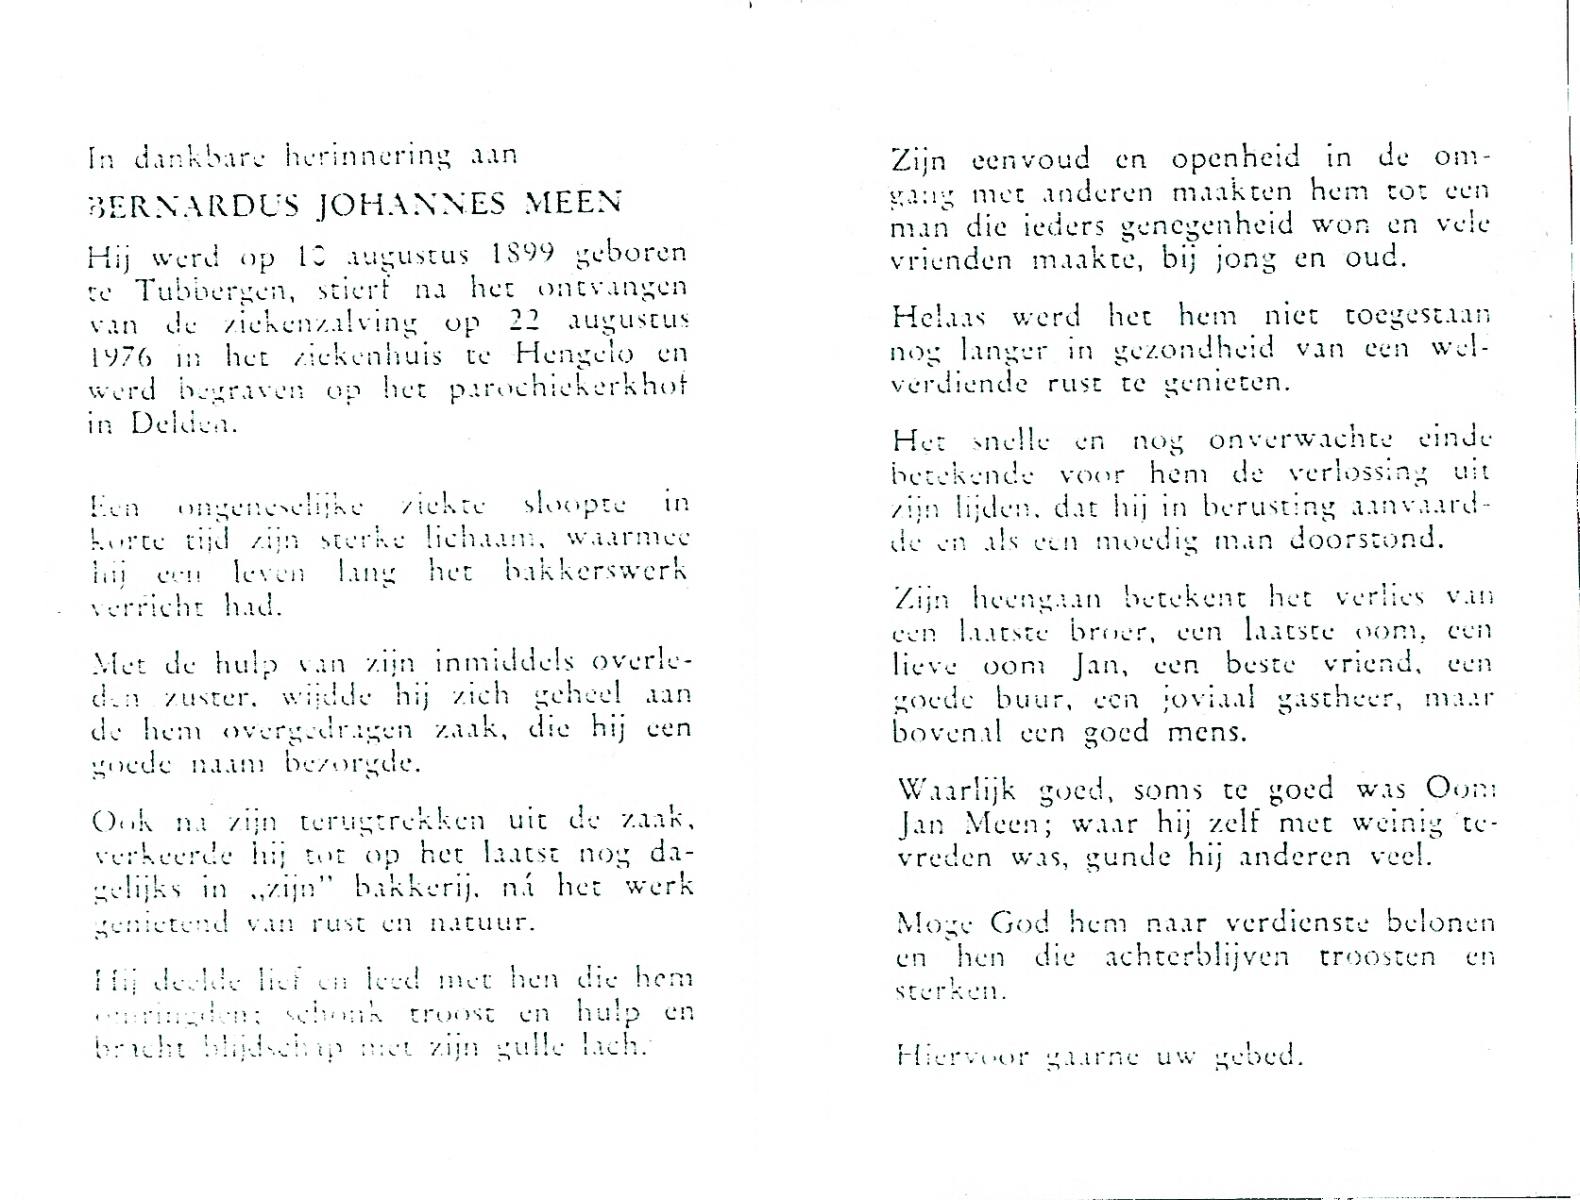 In dankbare herinnering aan
BERNARDUS JOHANNES MEEN
Hij werd op augustus 1899 geboren
te Tubbergen, stierf na het ontvangen
van de ziekenzalving op 22 augustus
1976 in het ziekenhuis te Hengelo en
werd begraven op het parochiekerkhof
in Delden.
Een ongeneselijke ziekte sloopte in
korte tijd zijn sterke lichaam, waarmee
hij een leven lang het bakkerswerk
verricht had.
Met de hulp van zijn inmiddels overle-
den zuster, wijdde hij zich geheel aan
de hem overgedragen zaak, die hij een
goede naam bezorgde.
Ook na zijn terugtrekken uit de zaak,
verkeerde hij tot op het laatst nog da-
gelijks in „zijn” bakkerij, ná het werk
genietend van rust en natuur.
Hij deelde lief en leed met hen die hem
omringden; schonk troost en hulp en
bracht blijdschap met zijn gulle lach.
Zijn eenvoud en openheid in de om-
gang met anderen maakten hem tot een
man die ieders genegenheid won en vele
vrienden maakte, bij jong en oud.
Helaas werd het hem niet toegestaan
nog langer in gezondheid van een wel-
verdiende rust te genieten.
Het snelle en nog onverwachte einde
betekende voor hem de verlossing uit
zijn lijden, dat hij in berusting aanvaard-
de en als een moedig man doorstond.
Zijn heengaan betekent het verlies van
een laatste broer, een laatste oom, een
lieve oom Jan, een beste vriend, een
goede buur, een joviaal gastheer, maar
bovenal een goed mens.
Waarlijk goed, soms te goed was Oom
Jan Meen; waar hij zelf met weinig te-
vreden was, gunde hij anderen veel.
Moge God hem naar verdienste belonen
en hen die achterblijven troosten en
sterken.
Hiervoor gaarne uw gebed.